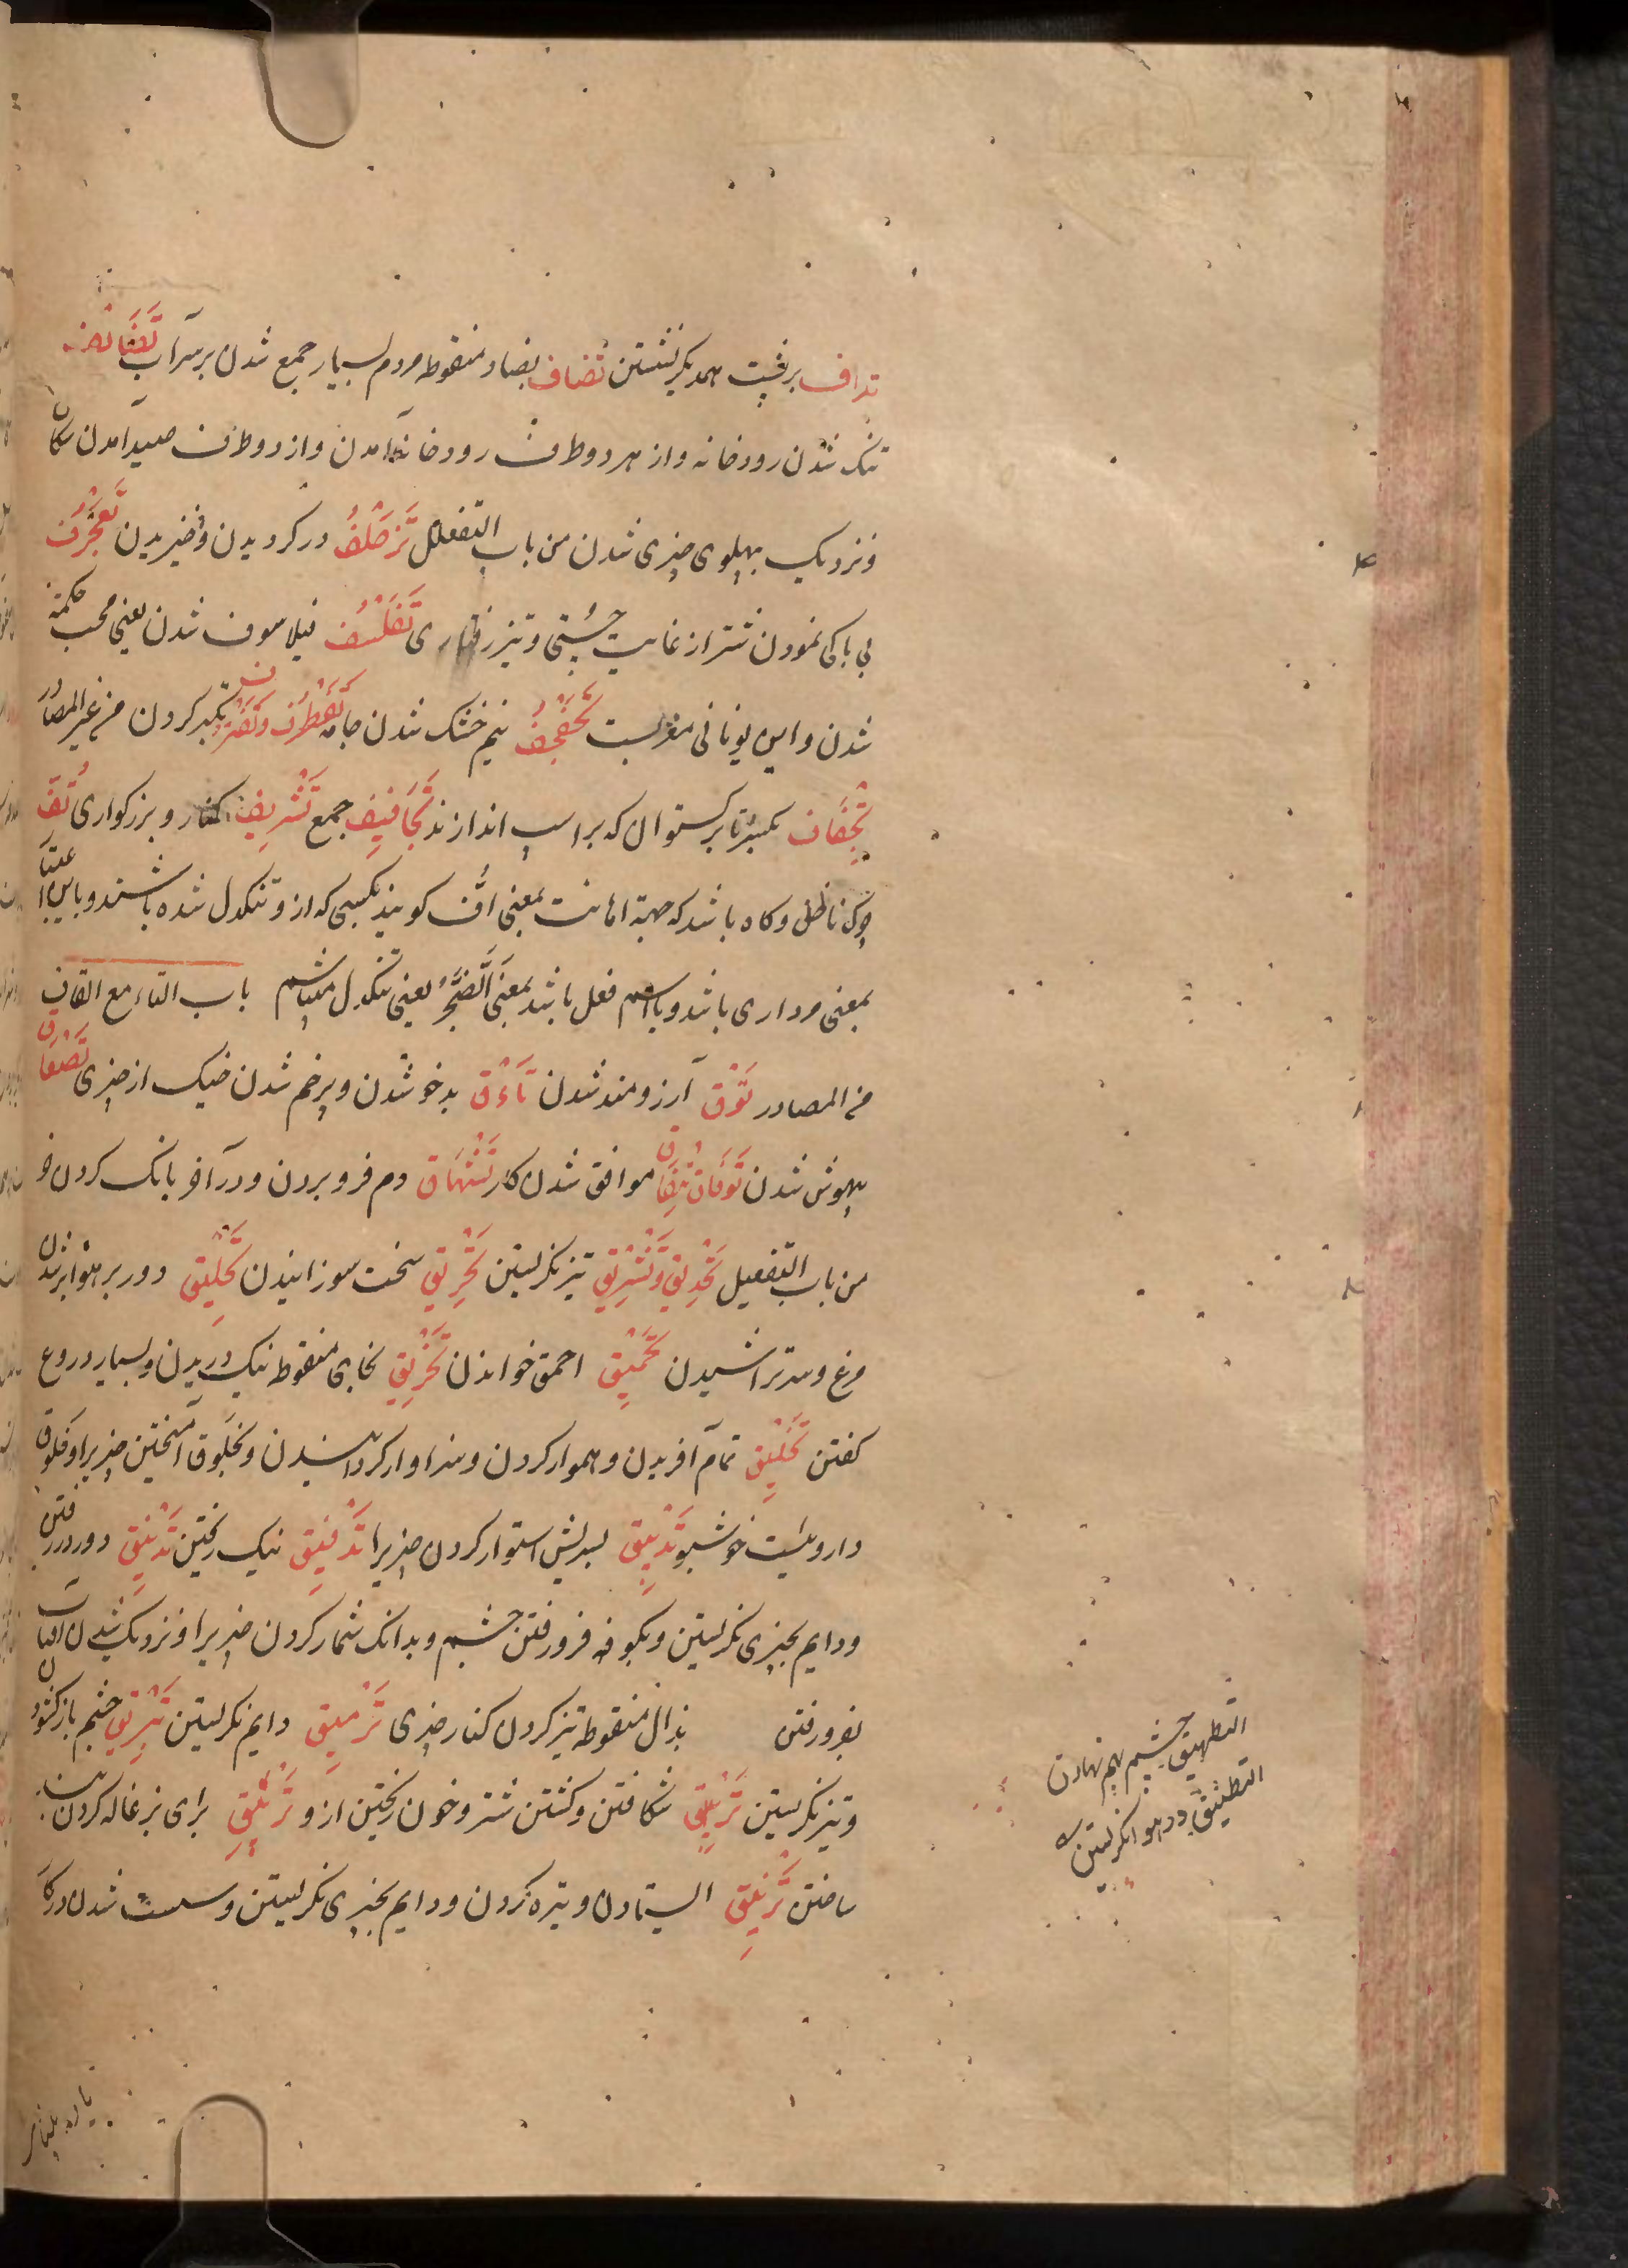 ترادف برپشت همدیگر نشستن تضاف بضاد منقوطه مردم بسیار جمع شدن برسر آب تضایف
تنک شدن رودخانه و از هر دو طرف رودخانه آمدن و از دو طرف صید آمدن سکان
و نزدیک بپهلوی چیزی شدن من باب التفعلل تزحلف در کردیدن و خیزیدن تعجرف
بی باکی نمودن شتر از غایت چستی و تیز رفتاری تفلسف فیلاسوف شدن یعنی محب حکمة
شدن و این یونانی معربست تجفجف نیم خشک شدن جامه تغطرف و تغترف تکبر کردن من غیر المصادر
تجفاف بکسر تا برکستوان که بر اسپ اندازند تجافیف جمع تشریف کنار و بزرکواری تف
چرک ناخن و کاه باشد که جهة اهانت بمعنی اف کویند بکسی که از و تنکدل شده باشند و باین اعتبار
بمعنی مرداری باشد و با اسم فعل باشد بمعنی اتضجر یعنی تنکدل میباشم باب التاء مع القاف
من المصادر توق آرزومند شدن تاءق بدخو شدن و پرخم شدن خیک از چیزی تصعاق
بیهوش شدن توفاق تیفاق موافق شدن کار تشهاق دم فرو بردن و در آخر بانک کردن خر
من باب التفعیل تحدیق و تشریق تیز نکریستن تحریق سخت سوزانیدن تحلیق دور بر هوا پریدن
مرغ و سر تراشیدن تحمیق احمق خواندن تخریق بخای منقوطه نیک دریدن و بسیار دروغ
کفتن تخلیق تمام آفریدن و هموار کردن و سزاوار کردانیدن و بخلوق آمیختن چیزیرا و خلوق
داروییست خوشبو تدبیق بسریش استوار کردن چیزیرا تدفیق نیک ریختن تدنیق دور در رفتن
و دایم بچیزی نکریستن و بکو فرو رفتن چشم و بدانک شمار کردن چیزیرا و نزدیک شدن آفتاب
بفرو رفتن بذال منقوطه تیز کردن کنار چیزی ترمیق دایم نکریستن تبریق چشم باز کشودن
و تیز نکریستن تزلیق شکافتن و کشتن شتر و خون ریختن از و تربیق برای بزغاله کردن بند
ساختن ترنیق ایستادن و تیره کردن و دایم بچیزی نکریستن و سست شدن در کار
التطهیق چشم بهم نهادن
التطنیق در هوا نکریستن